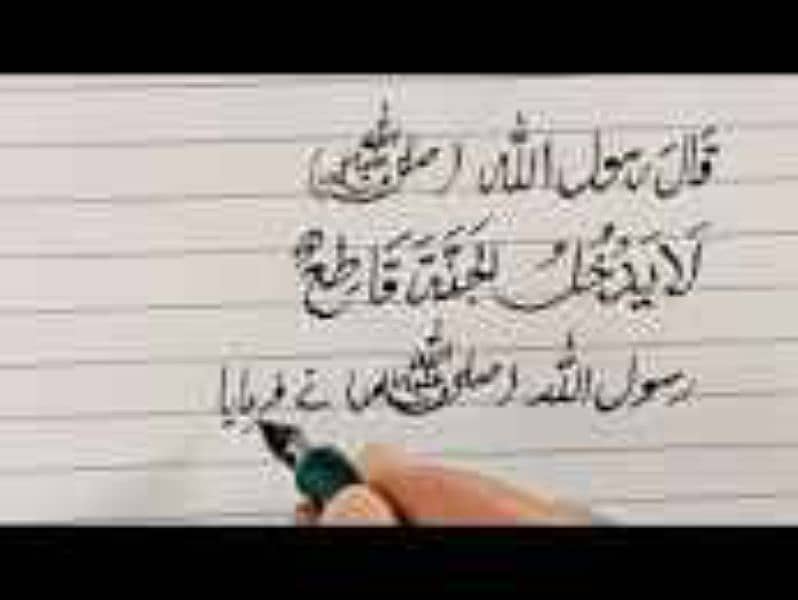 قَالَ رسول اللہ (صلی اللہ علیہ وسلم)
لَا يَدْخُلُ لجَنَّةَ قَاطِعٌ
رسول اللہ (صلی اللہ علیہ وسلم) نے فرمایا